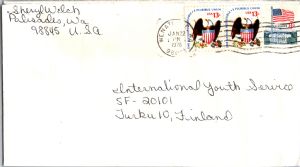 Sheryl Welch
Palisades, Wa
98845 U.S.A
JAN 22
PM
1976
E PLURIBUS UNUM
13c
E PLURIBUS UNUM
13c
International Youth Service
SF-20101
Turku 10, Finland